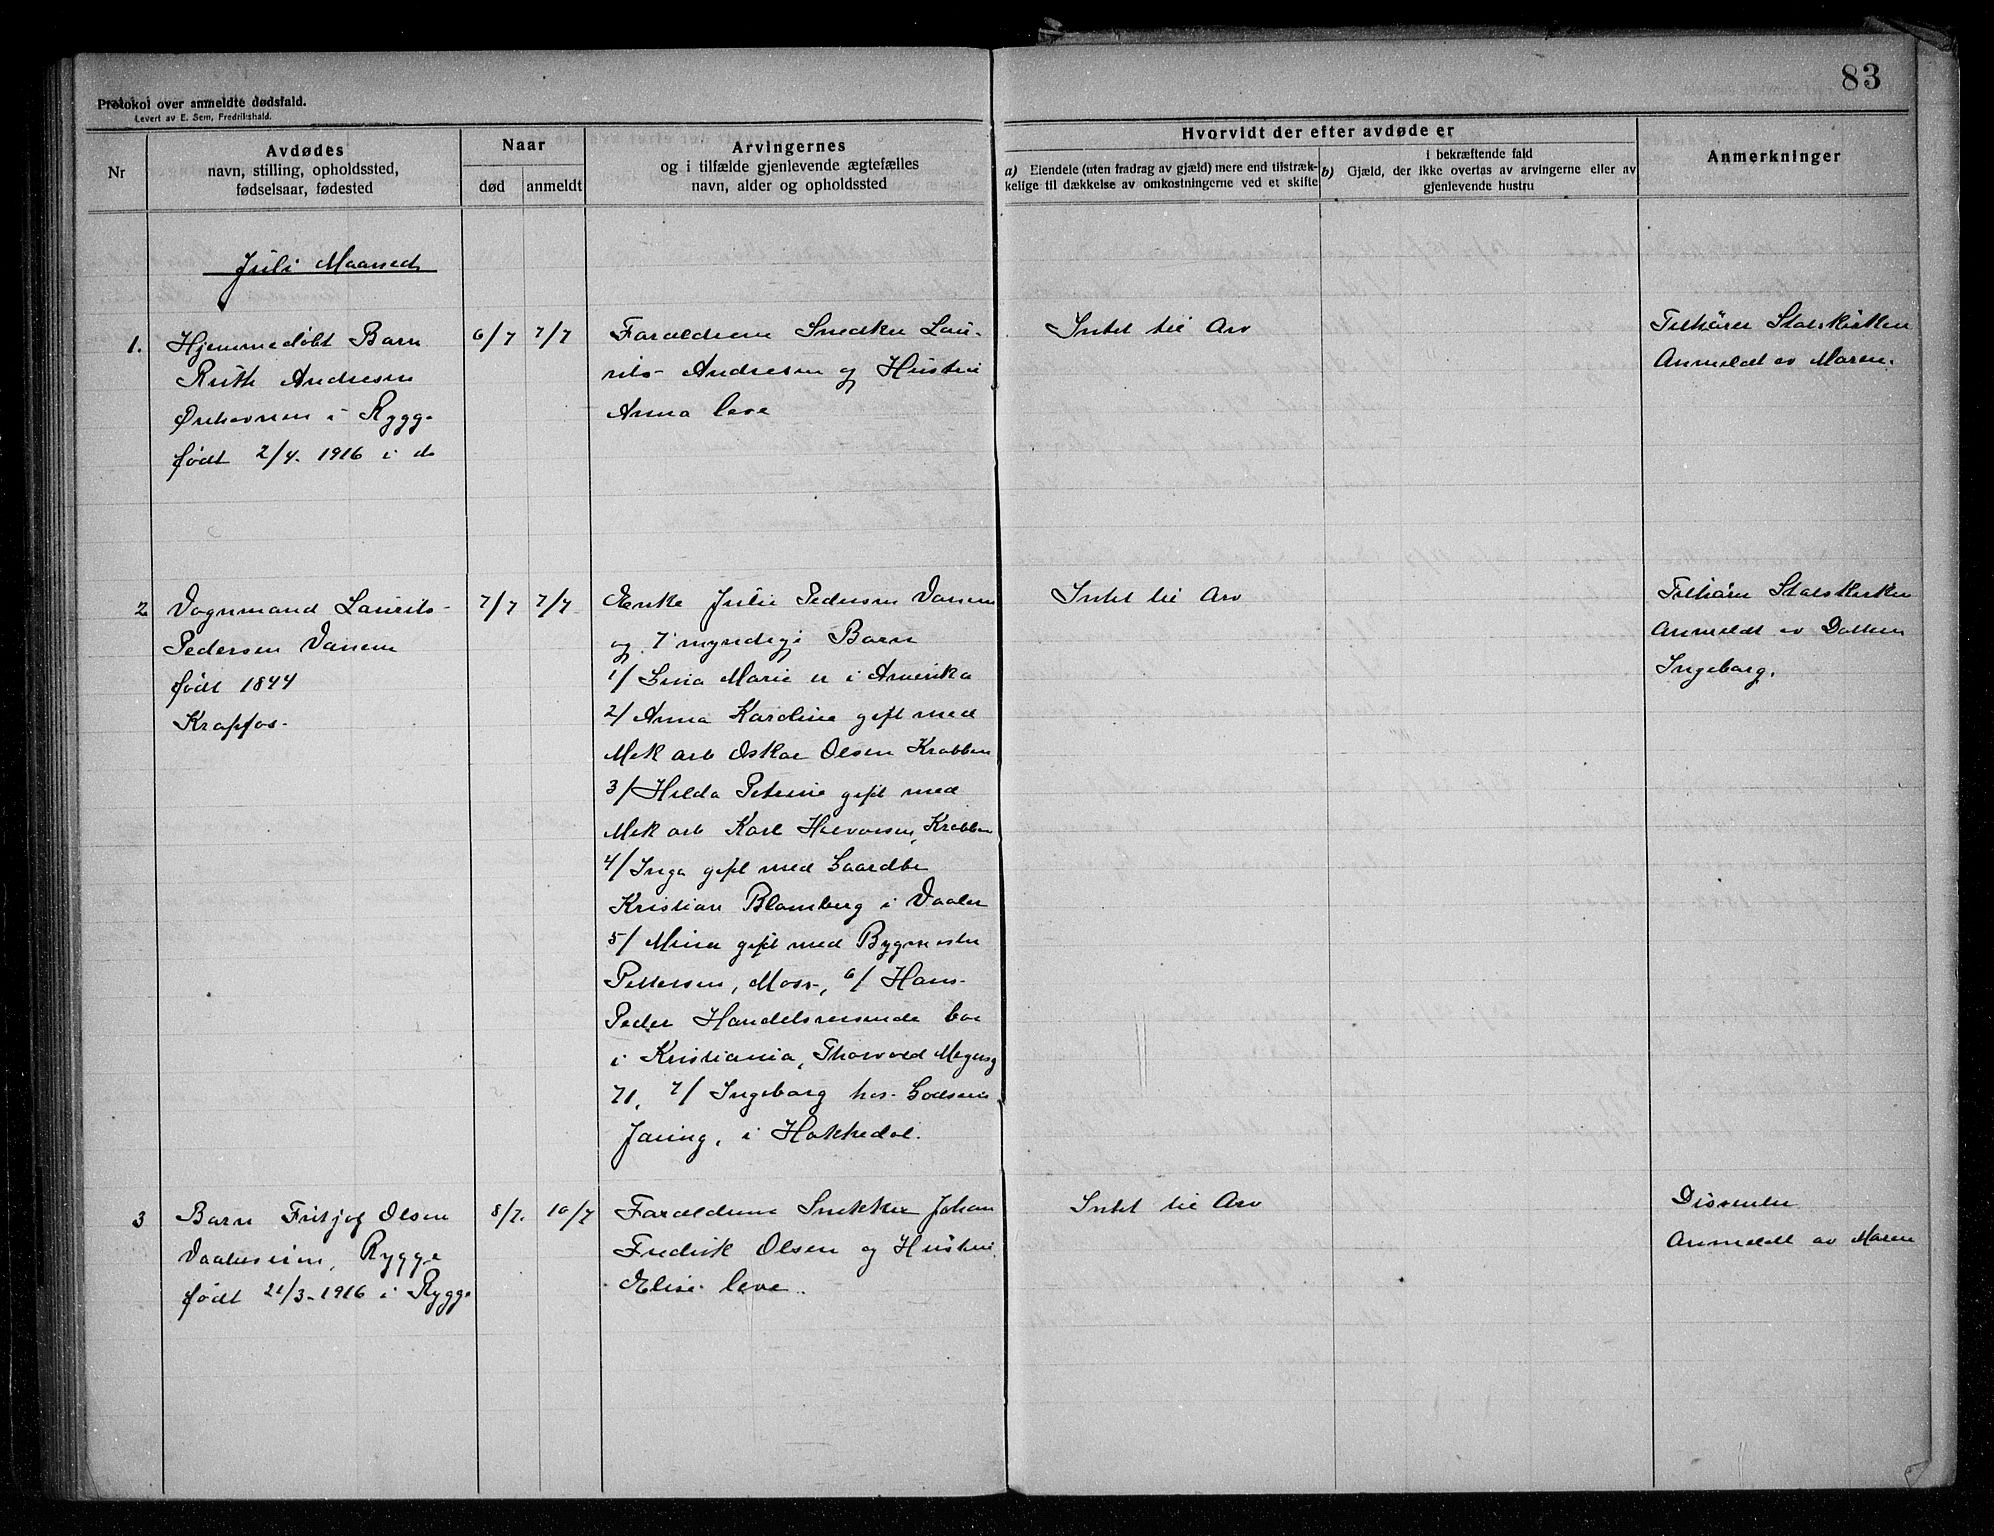 83
Protokol over anmeldte dødsfald.
Levert av E. Sem, Fredrikshald.
Nr
Avdødes
navn, stilling, opholdssted,
fødselsaar, fødested
Naar
død
anmeldt
Arvingernes
og i tilfælde gjenlevende ægtefælles
navn, alder og opholdssted
Hvorvidt der efter avdøde er
a) Eiendele (uten fradrag av gjæld) mere end tilstræk-
kelige til dækkelse av omkostningerne ved et skifte
i bekræftende fald
b) Gjæld, der ikke overtas av arvingerne eller av
gjenlevende hustru
Anmerkninger
Juli Maaned
1.
Hjemmedøbt Barn
Ruth Andresen
Ørehavnen i Rygge
født 2/4. 1916 i do
6/7
7/7
Foraeldrene Snedker Lau-
rits Andresen og Hustru
Anna leve
Intet til Arv
Tilhører Statskirken
Anmeldt av Moren.
2
Vognmand Laurits
Pedersen Vanem
født 1844
Krapfos
7/7
7/7
Enke Julie Pedersen Vanem
og 7 myndige Barn
1/ Lina Marie er i Amerika
2/ Anna Karoline gift med
Mek arb Oskar Olsen Krabben
3/ Hilda Petrine gift med
Mek arb Karl Halvorsen, Krabben
4/ Inga gift med Gaardbr
Kristian Blomberg i Vaaler
5/ Mina gift med Bygmester
Pettersen, Moss, 6/ Hans
Peder Handelsreisende bor
i Kristiania, Thorvald Meyersg
71, 7/ Ingeborg hos Godseier
Jaring, i Hakkedal.
Intet til Arv
Tilhører Statskirken
Anmeldt av Datteren
Ingeborg.
3
Barn Fritjof Olsen
Vaalerveien, Rygge
født 21/3-1916 i Rygge
8/7.
10/7
Foraeldrene Snekker Johan
Fredrik Olsen og Hustru
Elise leve.
Intet til Arv
Dissenter
Anmeldt av Moren